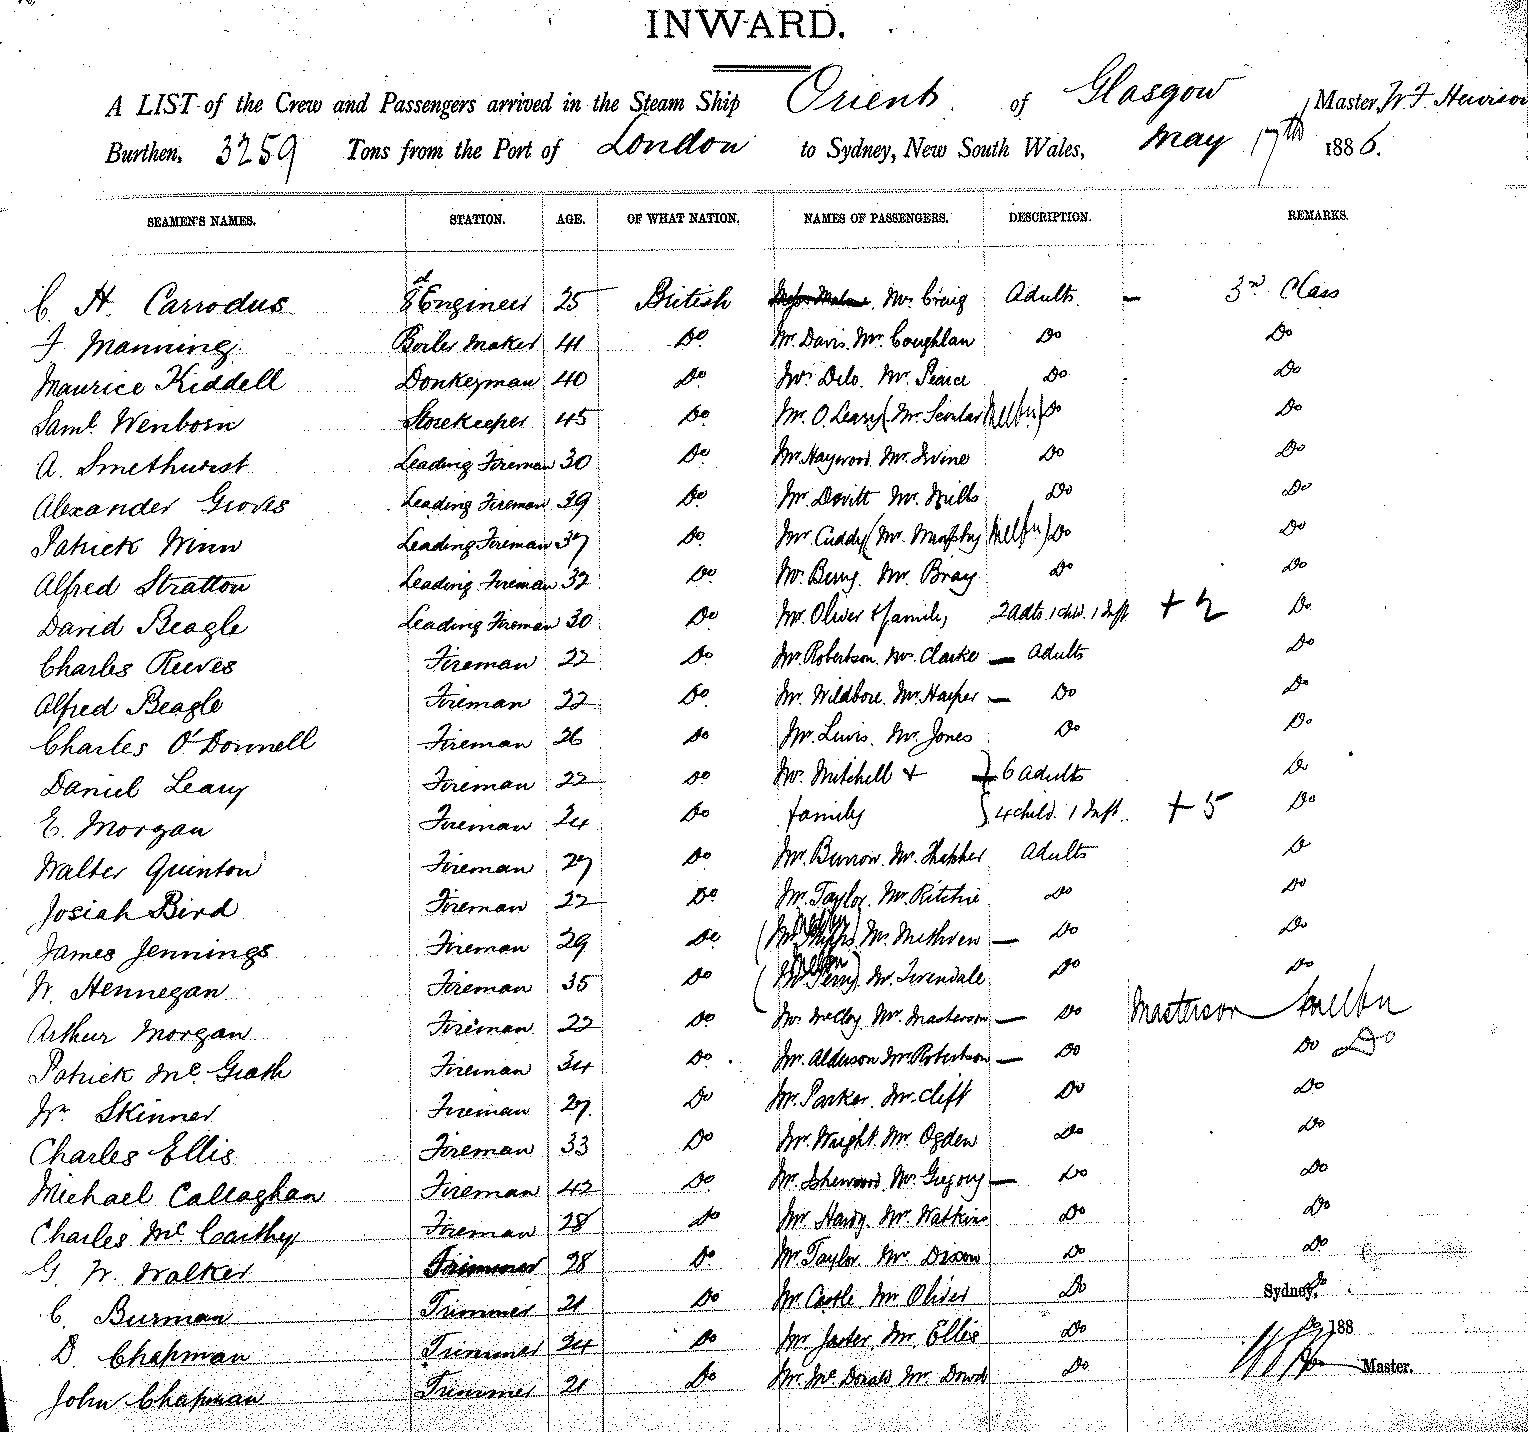 INWARD.
A LIST of the Crew and Passengers arrived in the Steam Ship Orient of Glasgow Master, W F Hewison
Burthen, 3259 Tons from the Port of London to Sydney, New South Wales, May 17th 1886.
SEAMEN'S NAMES. STATION. AGE. OF WHAT NATION. NAMES OF PASSENGERS. DESCRIPTION. REMARKS.
C. H. Carrodus 8th Engineer 25 British Mr Craig Adults. — 3rd Class
F Manning Boiler Maker 41 Do Mr. Davis. Mr. Coughlan Do Do
Maurice Kiddell Donkeyman 40 Do Mr. Pearce Do Do
Saml. Wenborn Storekeeper 45 Do Mr. O.Leary (Mr. Melbn) Do Do
A. Smethurst Leading Fireman 30 Do Mr. Haywood. Mr. Irvine Do Do
Alexander Groves Leading Fireman 39 Do Mr. Devitt Mr. Mills Do Do
Patrick Winn Leading Fireman 37 Do Mr Cuddy (Mr. Murphy Melbn) Do Do
Alfred Stratton Leading Fireman 32 Do Mr. Berry. Mr. Bray Do Do
David Beagle Leading Fireman 30 Do Mr. Oliver & family, 2 adts. 1 chd. 1 Inft + 2 Do
Charles Reeves Fireman 22 Do Mr. Robertson. Mr. Clarke — Adults Do
Alfred Beagle Fireman 22 Do Mr. Wildbore. Mr. Harper — Do Do
Charles O'Donnell Fireman 26 Do Mr. Lewis. Mr. Jones Do Do
Daniel Leary Fireman 22 Do Mr. Mitchell & } 6 Adults Do
E. Morgan Fireman 24 Do family } 4 child. 1 Inft. + 5 Do
Walter Quinton Fireman 27 Do Mr. Burrow. Mr. Adults Do
Josiah Bird Fireman 22 Do Mr. Taylor. Mr. Ritchie Do Do
James Jennings Fireman 29 Do (Mr. Phipps) Melbn Mr. Methven — Do Do
W. Hennegan Fireman 35 Do (Mr. Perry) Melbn Mr. Tivendale Do Do
Arthur Morgan Fireman 22 Do Mr. McCloy. Mr. Masterson — Do Masterson Melbn
Patrick Mc. Grath Fireman 34 Do Mr. Alderson Mr. Robertson — Do Do Do
Wm Skinner Fireman 27. Do Mr. Parker. Mr. Clift Do Do
Charles Ellis Fireman 33 Do Mr. Wright. Mr. Ogden Do Do
Michael Callaghan Fireman 42 Do Mr. Isherwood. Mr. Gregory — Do Do
Charles Mc Carthy Fireman 28 Do Mr. Hardy. Mr. Watkins Do Do
G. W. Walker Trimmer 28 Do Mr. Taylor. Mr. Dixon Do Do
C. Burman Trimmer 21 Do Mr. Castle. Mr. Oliver Do Sydney, Do
D. Chapman Trimmer 24 Do Mr. Mr. Ellis Do Do 188
John Chapman Trimmer 21 Do Mr. Mc Donald Mr. Dowds Do Do Master.